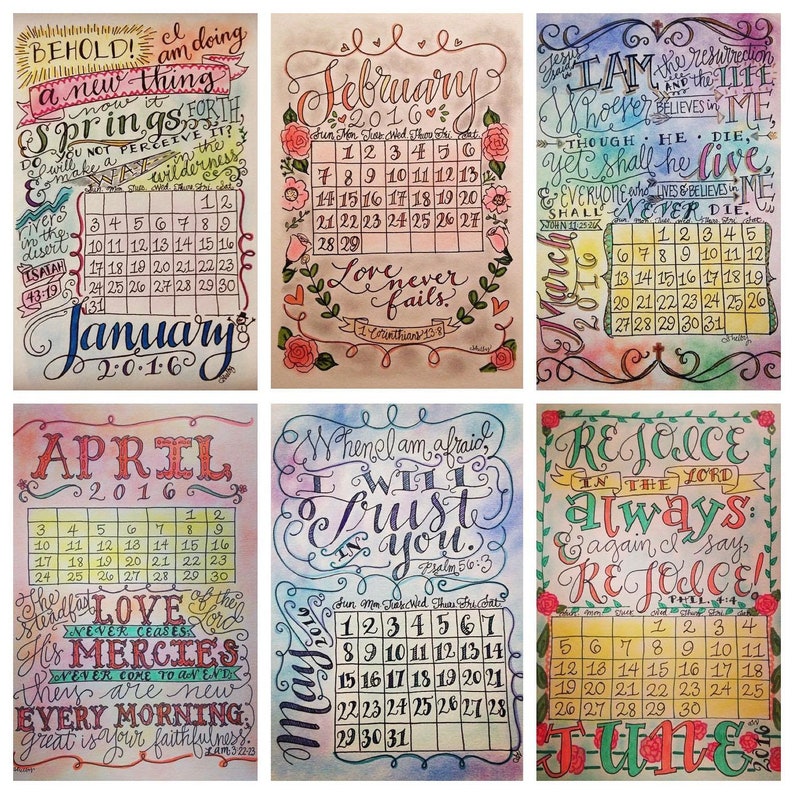 BEHOLD! I
am doing
a new thing
now it
springs FORTH,
DO YOU NOT PERCEIVE IT?
I will make a WAY in the wilderness
& rivers in the desert
ISAIAH
43:19
Sun. Mon. Tues. Wed. Thurs. Fri. Sat.
1 2
3 4 5 6 7 8 9
10 11 12 13 14 15 16
17 18 19 20 21 22 23
24 25 26 27 28 29 30
31
January
2·0·1·6
Shelby
February
2016
Sun Mon. Tues. Wed. Thurs Fri. Sat.
1 2 3 4 5 6
7 8 9 10 11 12 13
14 15 16 17 18 19 20
21 22 23 24 25 26 27
28 29
Love never
fails.
1 Corinthians 13:8
Shelby
Jesus said, "I AM the resurrection
AND the LIFE
Whoever BELIEVES in ME,
THOUGH · HE · DIE,
yet shall he live,
& EVERYONE who LIVES & BELIEVES in ME
SHALL NEVER DIE.
JOHN 11:25-26
Sun. Mon. Tues. Wed. Thurs. Fri. Sat.
1 2 3 4 5
6 7 8 9 10 11 12
13 14 15 16 17 18 19
20 21 22 23 24 25 26
27 28 29 30 31
March
2016
Shelby
APRIL
2016
1 2
3 4 5 6 7 8 9
10 11 12 13 14 15 16
17 18 19 20 21 22 23
24 25 26 27 28 29 30
The Steadfast LOVE of the Lord
NEVER CEASES;
His MERCIES
NEVER COME TO AN END;
they are new
EVERY MORNING;
great is your faithfulness.
Lam. 3:22-23
Shelby
When I am afraid,
I WILL
Trust
IN you.
Psalm 56:3
Sun Mon Tues. Wed Thurs. Fri. Sat.
1 2 3 4 5 6 7
8 9 10 11 12 13 14
15 16 17 18 19 20 21
22 23 24 25 26 27 28
29 30 31
May 2016
REJOICE
IN THE LORD
always:
& again I say
REJOICE!
PHIL. 4:4
Mon. Tues. Wed. Thurs. Fri. Sat.
1 2 3 4
5 6 7 8 9 10 11
12 13 14 15 16 17 18
19 20 21 22 23 24 25
26 27 28 29 30
JUNE
2016